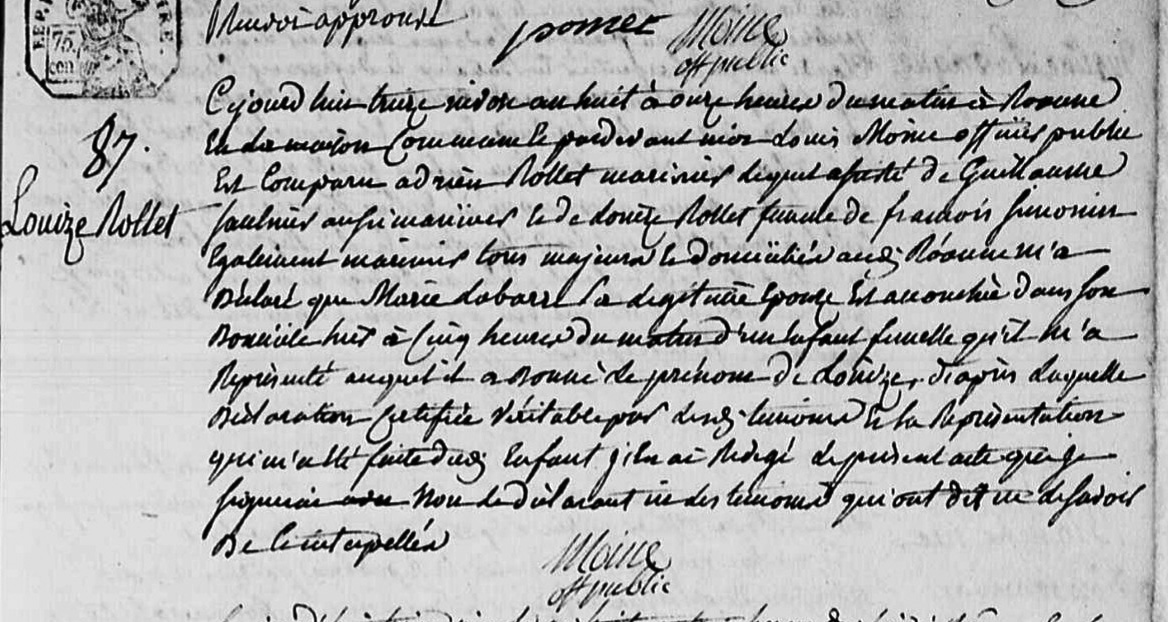 Renvoi approuvé
pomet Moine
off public
REP. FRA
75.
cen.
Cejourd'huis treize nivose an huit à onze heures du matin à Roanne
87. En la maison Commune & pardevant moi Louis Moine officier public
Est Comparu adrien Rollet marinier lequel assisté de Guillaume
Louize Rollet Saulnier aussi marinier & de Louize Rollet femme de francois Simonin
Egalement marinier tous majeurs & domiciliés aud. Roanne m'a
Déclaré que Marie Labarre Sa Legitime Epouse Est accouchée dans son
Domicile hier à Cinq heures du matin d'un Enfant femelle qu'il m'a
Représenté auquel il a Donné Le prenom de Louize, d'après Laquelle
Déclaration Certifiée Véritable par Lesd. temoins & la Représentation
qui m'a été faite dud. Enfant j'En ai Rédigé Le présent acte que je
Signerai non Le Déclarant ni les temoins qui ont dit ne le savoir
De Ce interpellés
Moine
off public